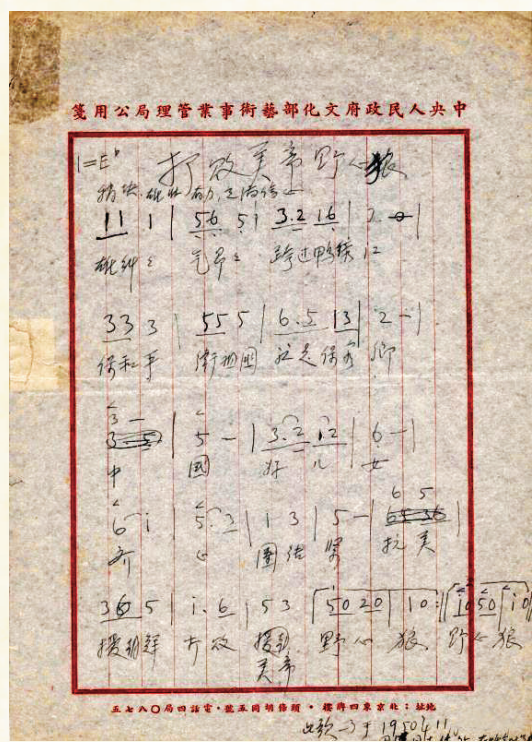 中央人民政府文化部藝術事業管理局公用箋
1=E♭ 打敗美帝野心狼
稍快 雄壮 有力,充满信心
11 1 | 56 51 | 3.2 16 | 2 - |
雄糾々 气昂々 跨过鴨綠江
33 3 | 55 5 | 6.5 13 | 2 - |
保和平 衛祖國 就是保家鄉
3 - | 5 - | 3.2 1.2 | 6 - |
中 國 好 儿 女
6 i | 5.3 | 1 3 | 5 - | 6 5 |
齐 心 團結 緊 抗 美
36 5 | i.6 | 5 3 | 50 20 | 10 :|| 10 50 | i0
援朝鮮 打敗 美帝 野心 狼 野心 狼
地址:北京東四牌樓・頭條胡同五號・電話四局〇八七五
1950 11